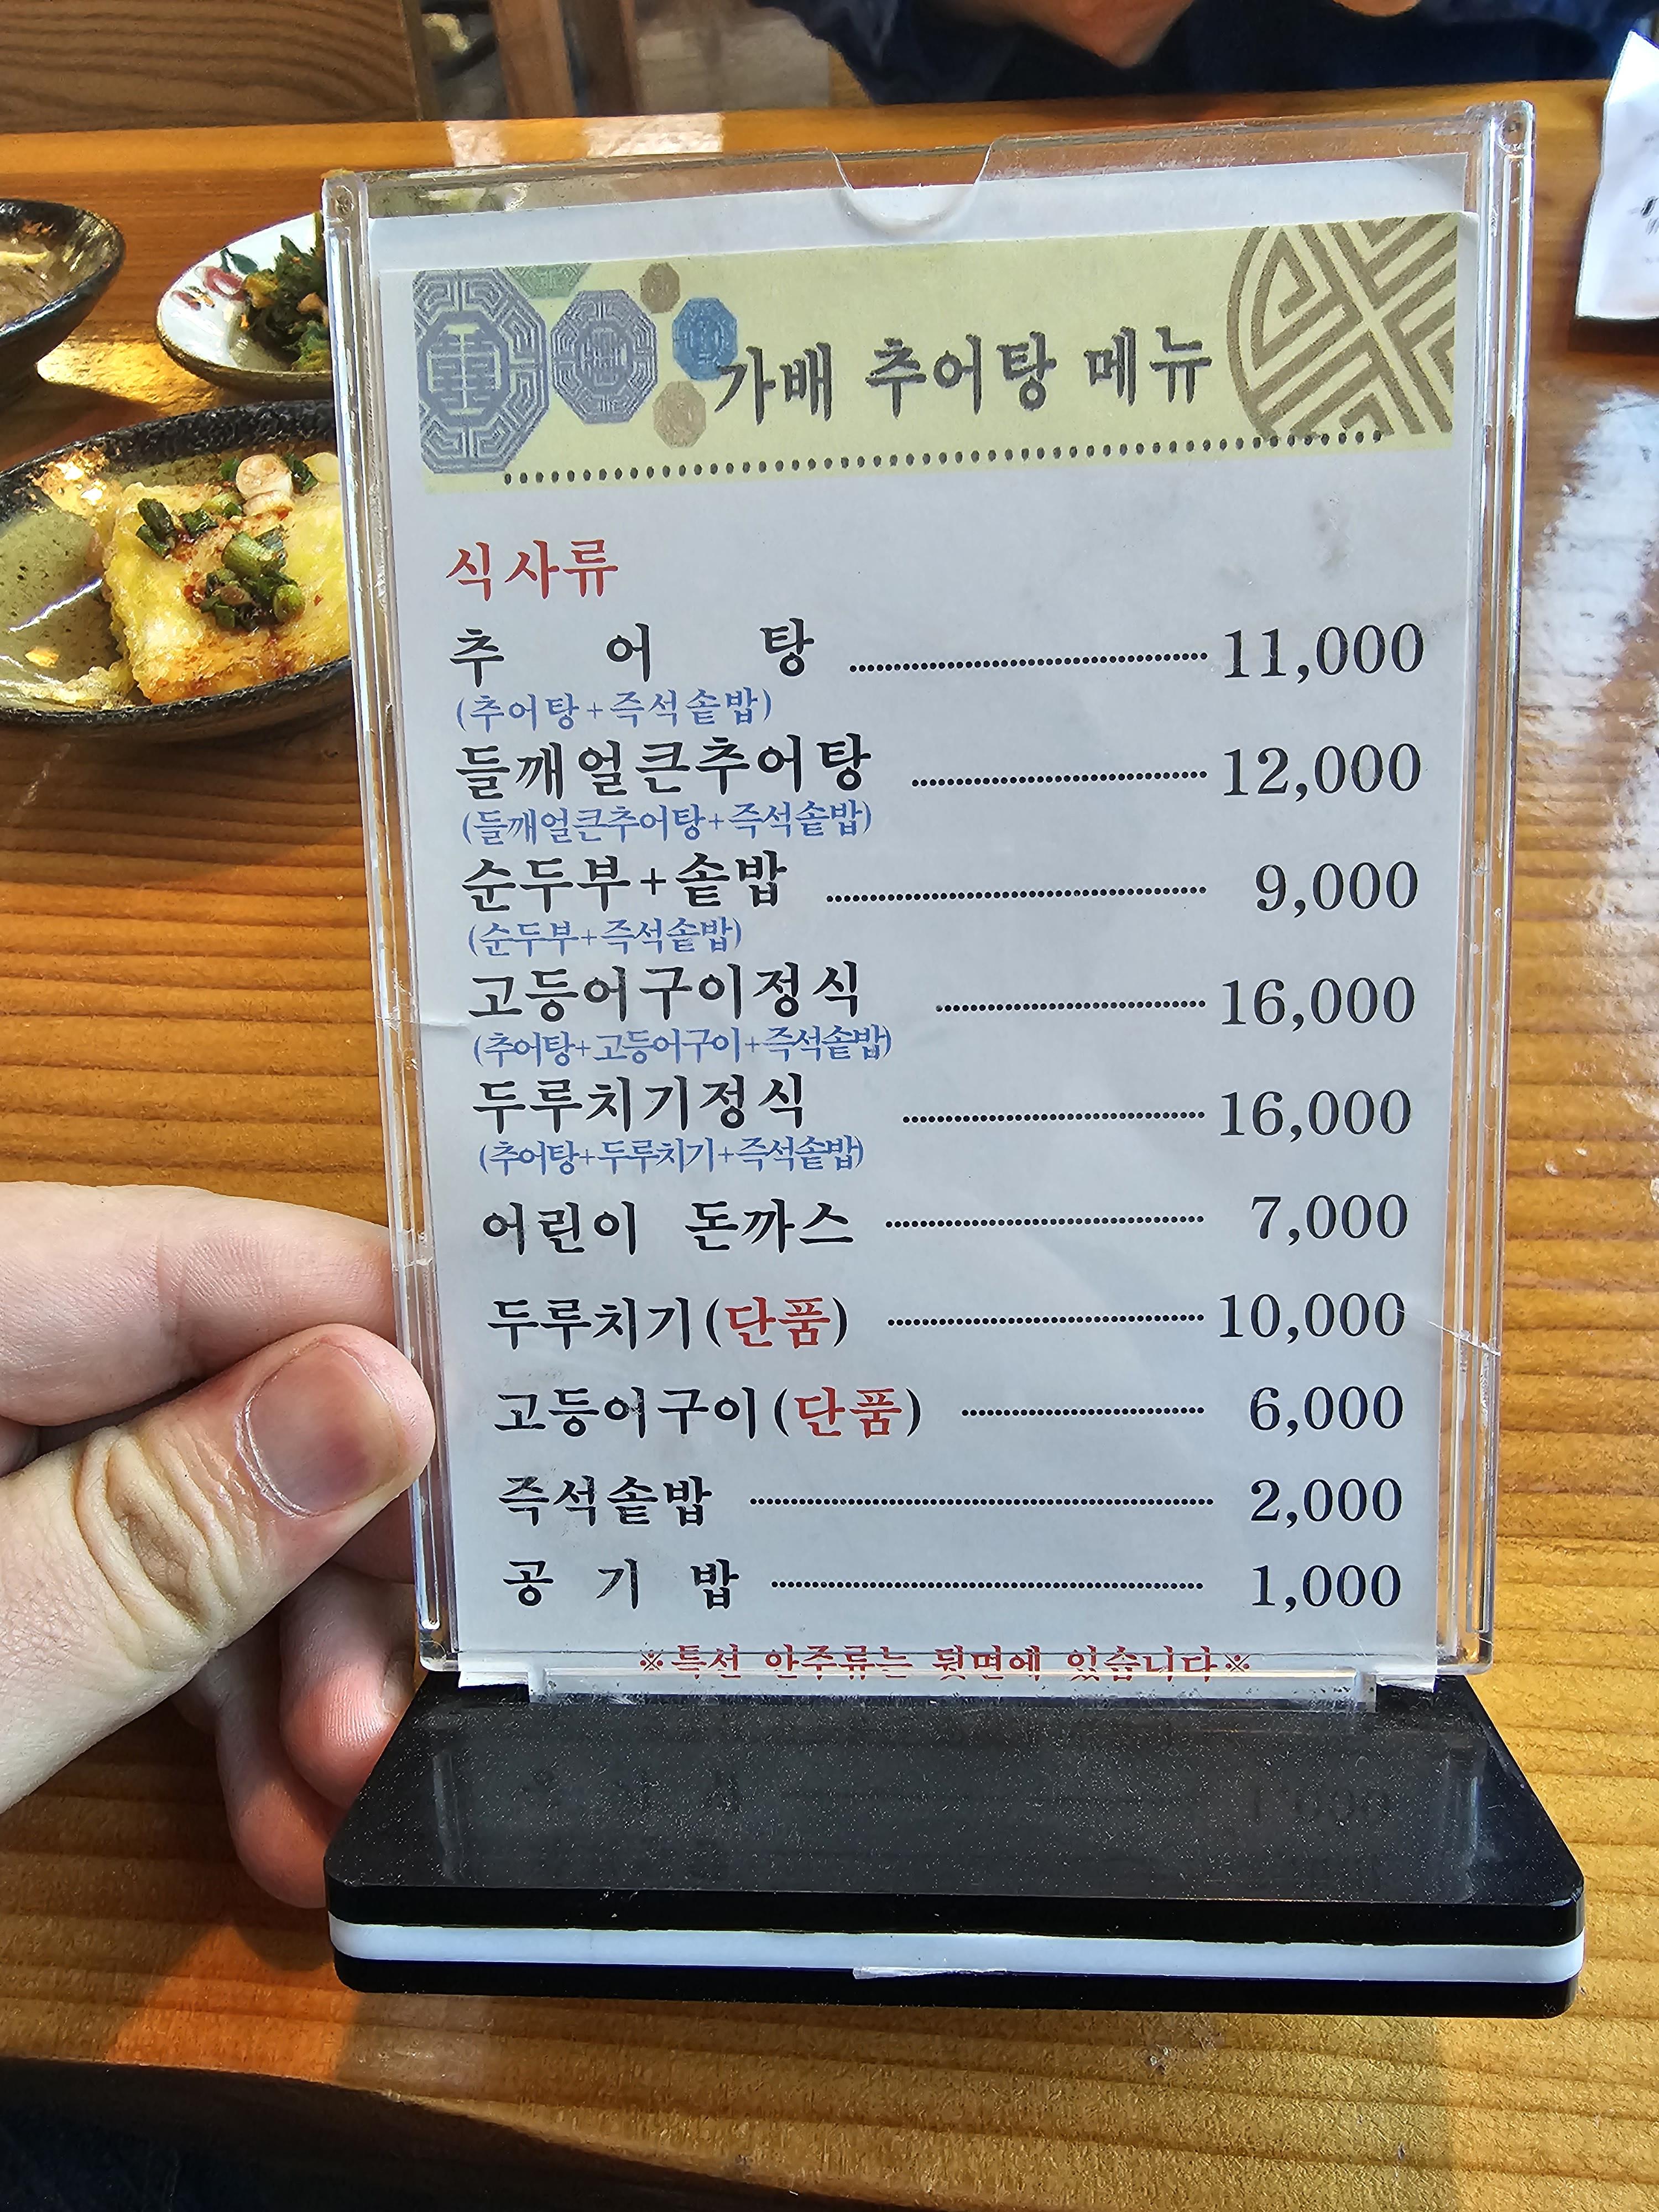 가배 추어탕 메뉴
식사류
추 어 탕 11,000
(추어탕+즉석솥밥)
들깨얼큰추어탕 12,000
(들깨얼큰추어탕+즉석솥밥)
순두부+솥밥 9,000
(순두부+즉석솥밥)
고등어구이정식 16,000
(추어탕+고등어구이+즉석솥밥)
두루치기정식 16,000
(추어탕+두루치기+즉석솥밥)
어린이 돈까스 7,000
두루치기(단품) 10,000
고등어구이(단품) 6,000
즉석솥밥 2,000
공 기 밥 1,000
※특선 안주류는 뒷면에 있습니다※